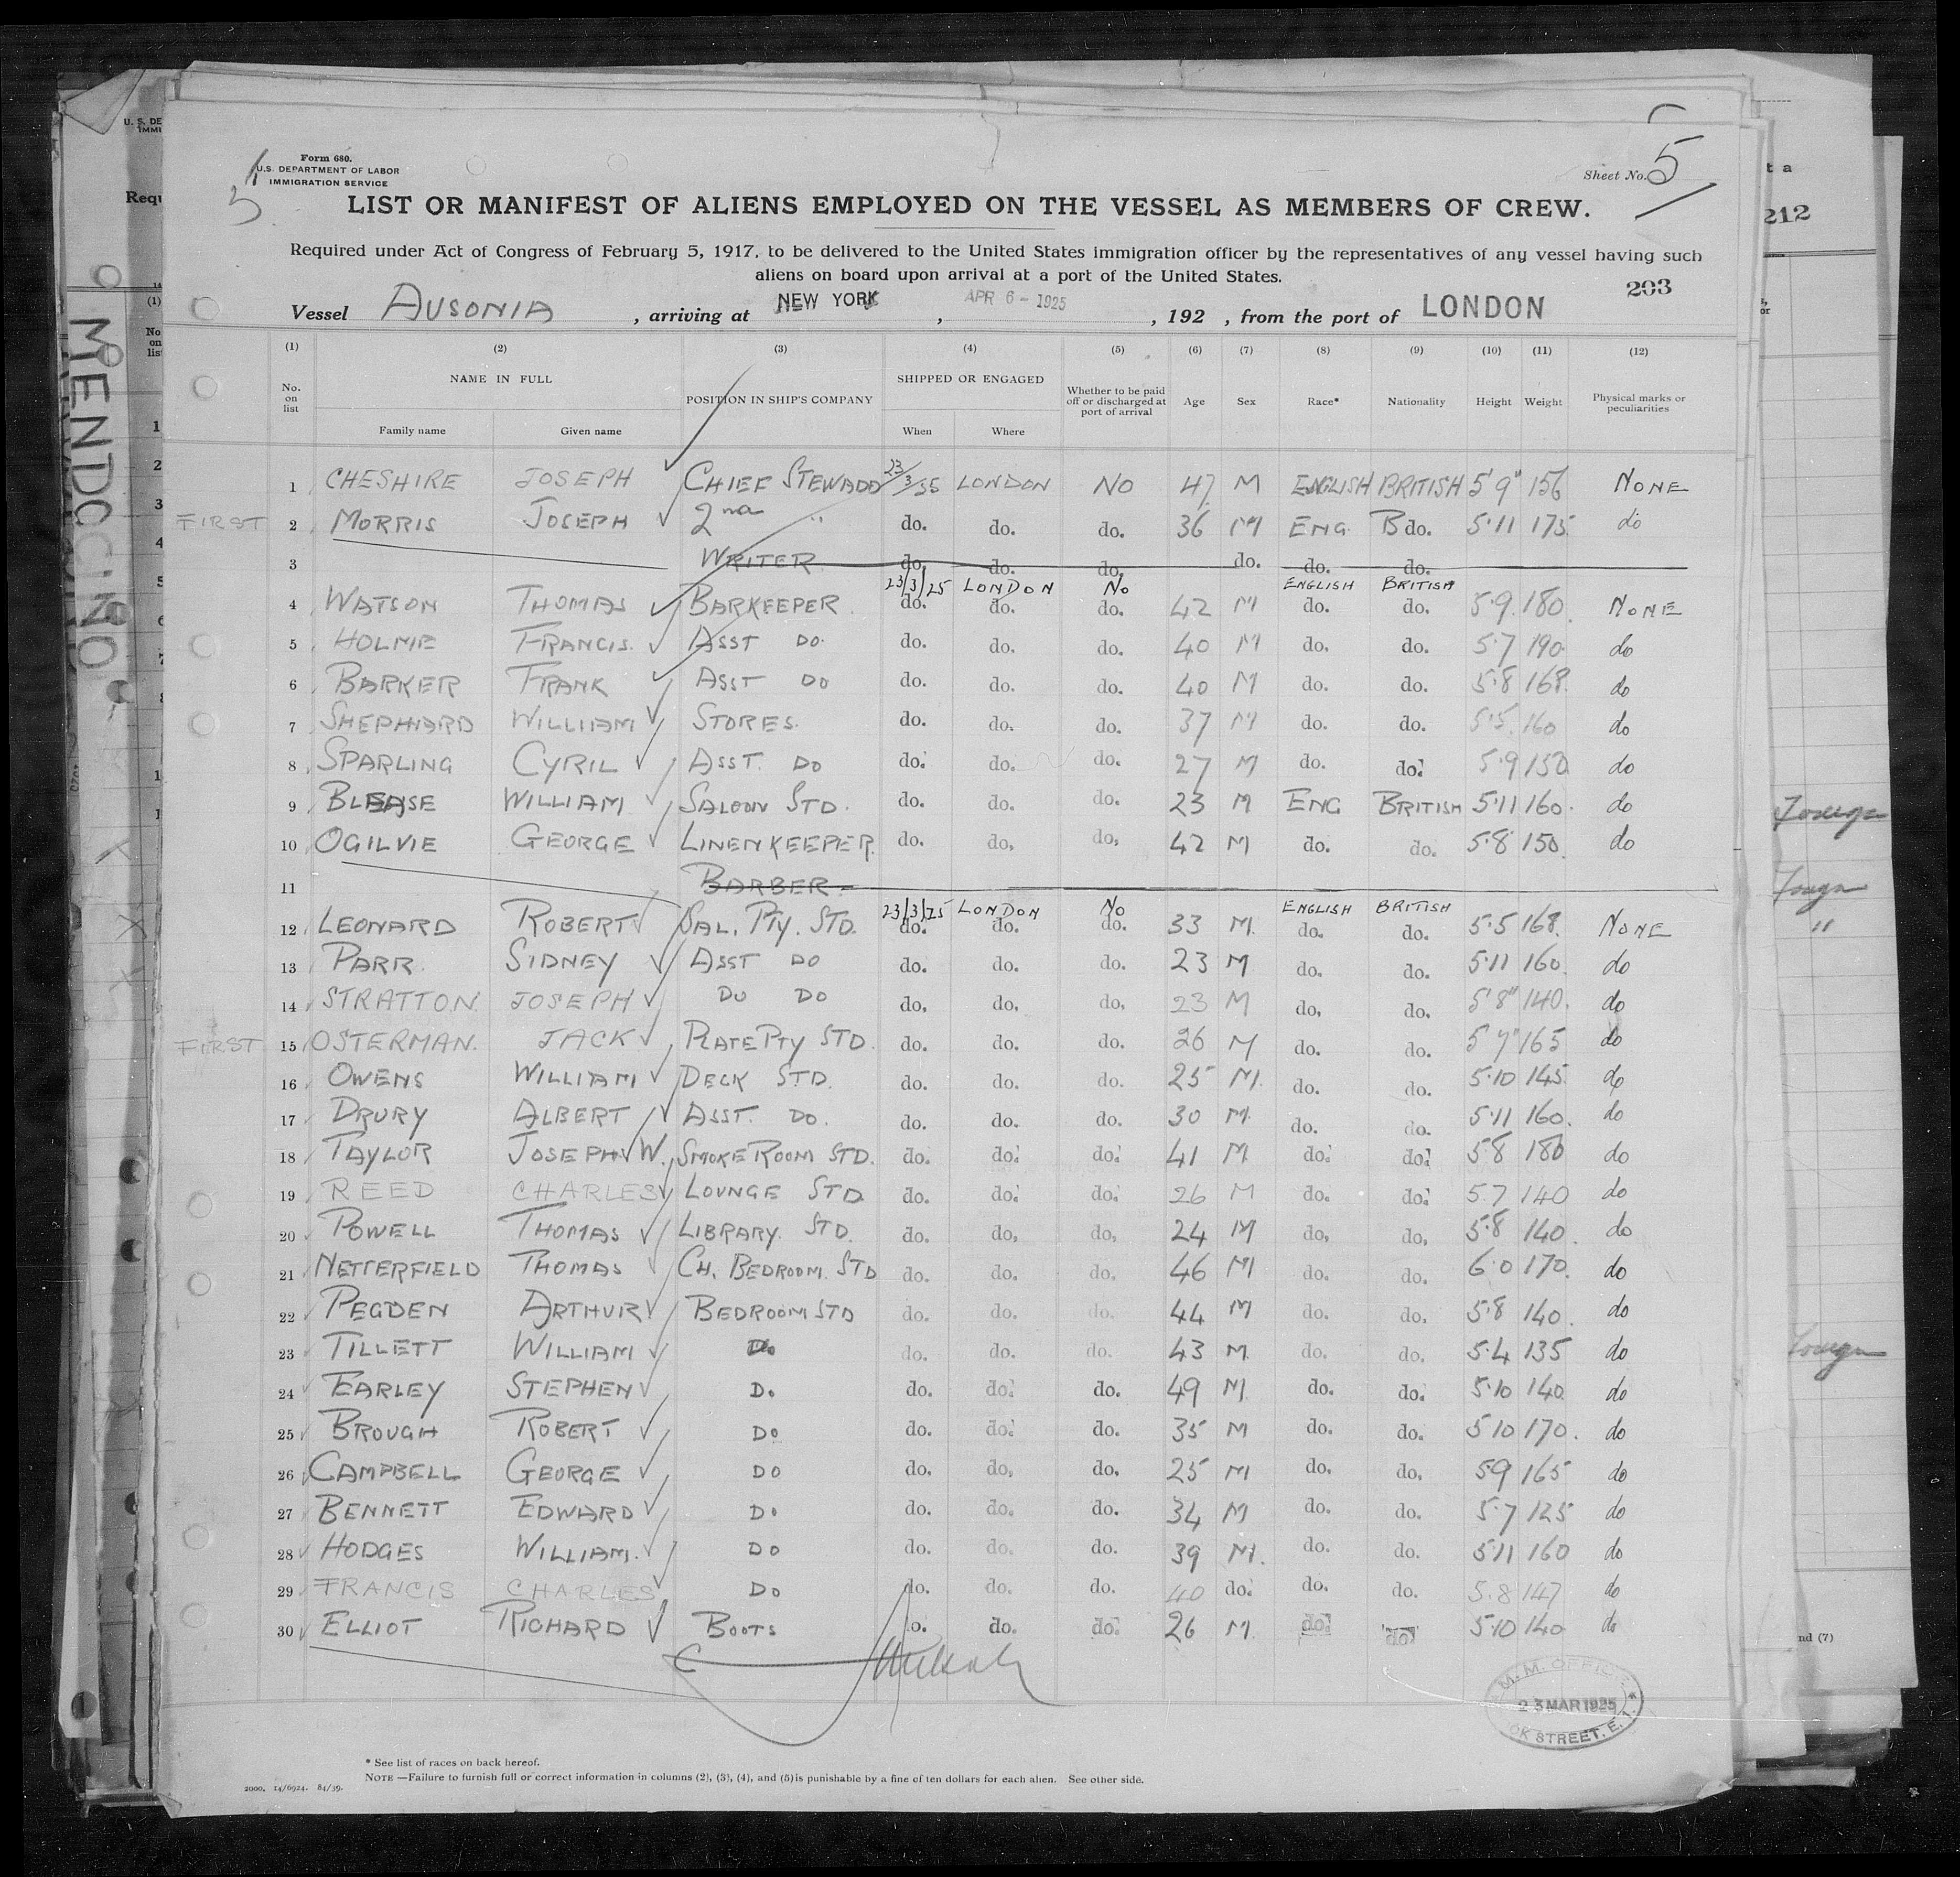 Form 680.
U.S. DEPARTMENT OF LABOR
IMMIGRATION SERVICE
Sheet No. 5
LIST OR MANIFEST OF ALIENS EMPLOYED ON THE VESSEL AS MEMBERS OF CREW.
Required under Act of Congress of February 5, 1917, to be delivered to the United States immigration officer by the representatives of any vessel having such
aliens on board upon arrival at a port of the United States.
203
Vessel AUSONIA , arriving at NEW YORK , APR 6 - 1925 , 192 , from the port of LONDON
(1) (2) (3) (4) (5) (6) (7) (8) (9) (10) (11) (12)
No. on list NAME IN FULL POSITION IN SHIP'S COMPANY SHIPPED OR ENGAGED Whether to be paid off or discharged at port of arrival Age Sex Race* Nationality Height Weight Physical marks or peculiarities
Family name Given name When Where
1 CHESHIRE JOSEPH CHIEF STEWARD 23/3/25 LONDON NO 47 M ENGLISH BRITISH 5'9" 156 NONE
FIRST 2 MORRIS JOSEPH 2nd " do. do. do. 36 M ENG. B do. 5.11 175 do
3 WRITER do. do. do. do. do. do.
23/3/25 LONDON No ENGLISH BRITISH
4 WATSON THOMAS BARKEEPER do. do. do. 42 M do. do. 5.9. 180. NONE
5 HOLMIE FRANCIS. ASST DO. do. do. do. 40 M do. do. 5.7 190. do
6 BARKER FRANK ASST DO do. do. do. 40 M do. do. 5.8 168. do
7 SHEPHIARD WILLIAM STORES. do. do. do. 37 M do. do. 5.5. 160 do
8 SPARLING CYRIL ASST. DO do. do. do. 27 M do. do. 5.9 150 do
9 BLEASE WILLIAM SALOON STD. do. do. do. 23 M ENG BRITISH 5.11 160. do
10 OGILVIE GEORGE LINENKEEPER. do. do. do. 42 M do. do. 5.8 150. do
11 BARBER
23/3/25 LONDON No ENGLISH BRITISH
12 LEONARD ROBERT SAL. PTY. STD. do. do. do. 33 M. do. do. 5.5 168. NONE
13 PARR. SIDNEY ASST DO do. do. do. 23 M do. do. 5.11 160. do
14 STRATTON. JOSEPH DO DO do. do. do. 23 M do. do. 5'8" 140. do
FIRST 15 OSTERMAN. JACK PLATE PTY STD. do. do. do. 26 M do. do. 5'7" 165 do
16 OWENS WILLIAM DECK STD. do. do. do. 25 M. do. do. 5.10 145. do
17 DRURY ALBERT ASST. DO. do. do. do. 30 M. do. do. 5.11 160. do
18 TAYLOR JOSEPH W. SMOKE ROOM STD. do. do. do. 41 M. do. do. 5.8 180 do
19 REED CHARLES LOUNGE STD do. do. do. 26 M do. do. 5.7 140 do
20 POWELL THOMAS LIBRARY. STD. do. do. do. 24 M do. do. 5.8 140. do
21 NETTERFIELD THOMAS CH. BEDROOM. STD do. do. do. 46 M do. do. 6.0 170. do
22 PEGDEN ARTHUR BEDROOM STD do. do. do. 44 M do. do. 5.8 140. do
23 TILLETT WILLIAM Do do. do. do. 43 M. do. do. 5.4 135 do
24 EARLEY STEPHEN Do do. do. do. 49 M. do. do. 5.10 140 do
25 BROUGH ROBERT DO do. do. do. 35 M do. do. 5 10 170. do
26 CAMPBELL GEORGE DO do. do. do. 25 M do. do. 5 9 165 do
27 BENNETT EDWARD DO do. do. do. 34 M do. do. 5.7 125 do
28 HODGES WILLIAM. DO do. do. do. 39 M. do. do. 5 11 160 do
29 FRANCIS CHARLES DO do. do. do. 40 do. do. do. 5.8 147 do
30 ELLIOT RICHARD BOOTS do. do. 26 M. do. do. 5.10 140 do
M.M. OFFICE
23 MAR 1925
STREET. E.1.
* See list of races on back hereof.
NOTE —Failure to furnish full or correct information in columns (2), (3), (4), and (5) is punishable by a fine of ten dollars for each alien. See other side.
2000. 14/6924. 84/39.
MENDOCINO
212